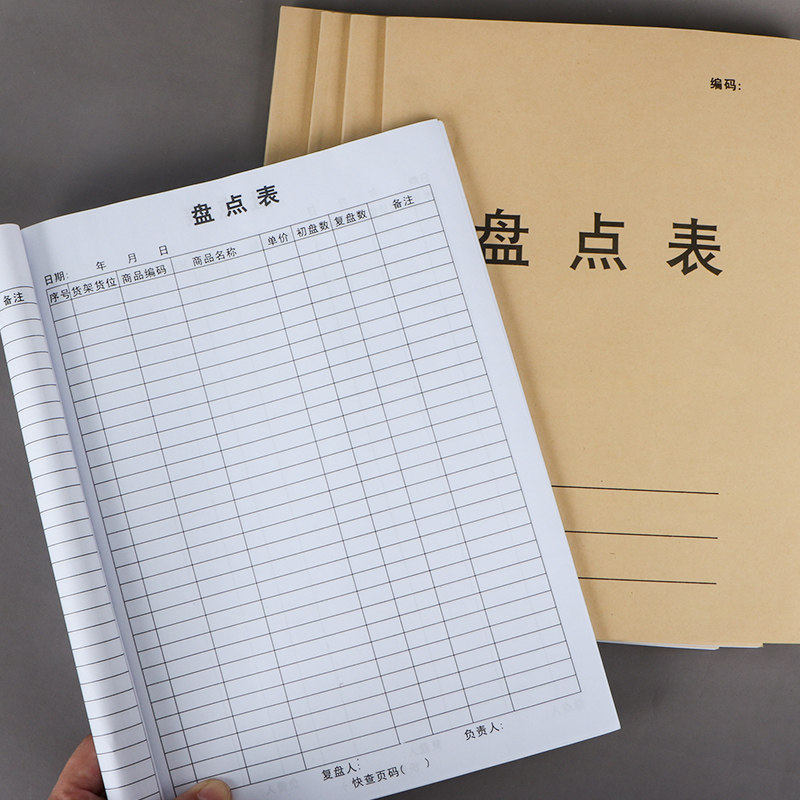 编码:
盘点表
盘点表
日期: 年 月 日
序号 货架货位 商品编码 商品名称 单价 初盘数 复盘数 备注
备注
复盘人: 负责人:
快查页码( )